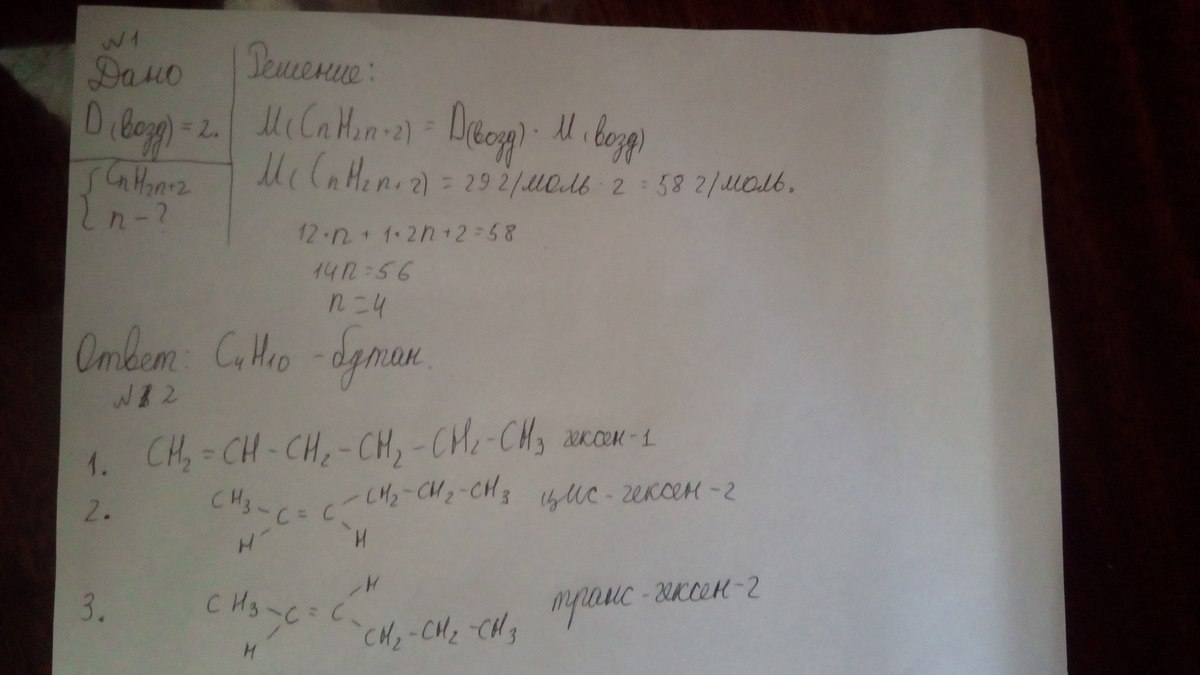 №1
Дано
D(возд) = 2.
CnH2n+2
n - ?
Решение:
M(CnH2n+2) = D(возд) · M(возд)
M(CnH2n+2) = 29 г/моль · 2 = 58 г/моль.
12·n + 1·2n+2=58
14n=56
n=4
Ответ: C4H10 - бутан.
№ 2
1. CH2 = CH - CH2 - CH2 - CH2 - CH3 гексен-1
2. CH3 - C = C - CH2-CH2-CH3 цис-гексен-2
H H
3. CH3 - C = C - H транс-гексен-2
H CH2-CH2-CH3